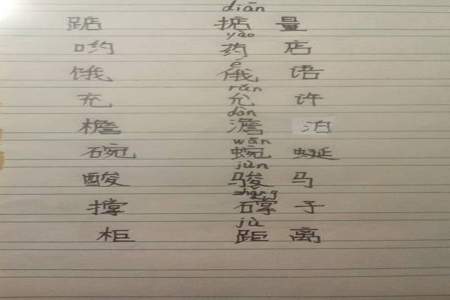 diān
踮 掂 量
yào
哟 药 店
é
饿 俄 语
yǔn
充 允 许
dàn
檐 澹 泊
wān
碗 蜿 蜒
jùn
酸 骏 马
zhǎng
撑 礃 子
jù
柜 距 离